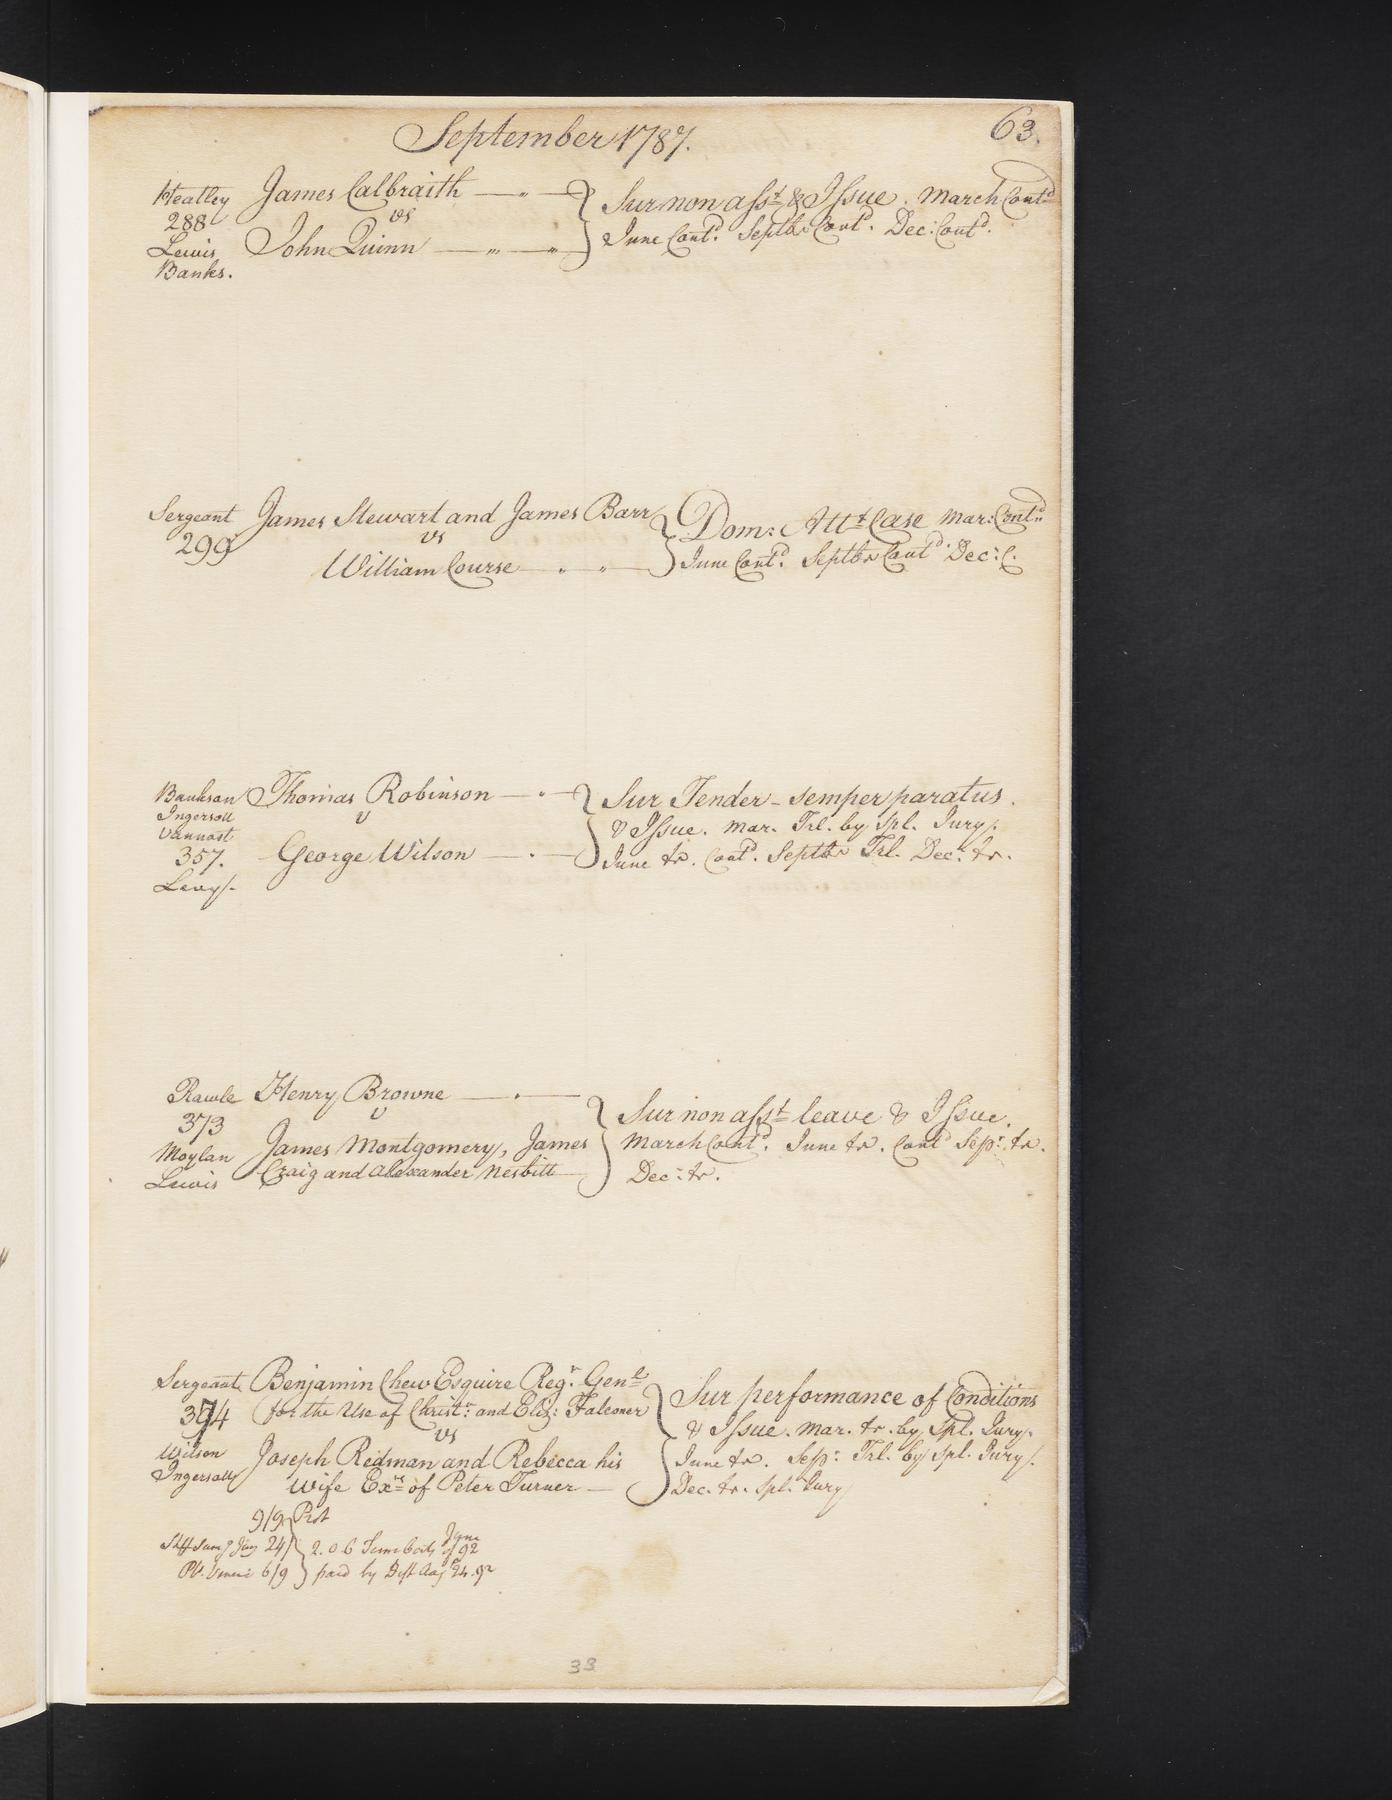 63.
September 1787.
Heatley James Calbraith
288 vs
Lewis John Quinn
Banks.
Sur non asst & Issue. March Contd
June Contd. Septbr Contd. Dec: Contd.
Sergeant James Stewart and James Barr
299 vs
William Course
Dom: Attt Case Mar: Contd
June Contd. Septbr Contd. Dec: C.
Bankson Thomas Robinson
Ingersoll v
Vannost
357. George Wilson
Levy.
Sur Tender - semper paratus.
& Issue. Mar. Trl. by Spl. Jury.
June tr. Contd. Septbr Trl. Dec: tr.
Rawle Henry Browne
373 v
Moylan James Montgomery, James
Lewis Craig and Alexander Nesbitt
Sur non asst leave & Issue.
March Contd. June tr. Contd Sepr. tr.
Dec: tr.
Sergeant Benjamin Chew Esquire Regr. Genl
374 for the Use of Christr. and Eliz: Falconer
vs
Wilson Joseph Redman and Rebecca his
Ingersoll Wife Exrs of Peter Turner
Sur performance of Conditions
& Issue. Mar. tr. by Spl. Jury.
June tr. Sepr: Trl. by Spl. Jury.
Dec. tr. Spl. Jury
9/9 Prot
24/ 2.0.6 June 92
6/9 paid by Deft Aug 24. 92
33